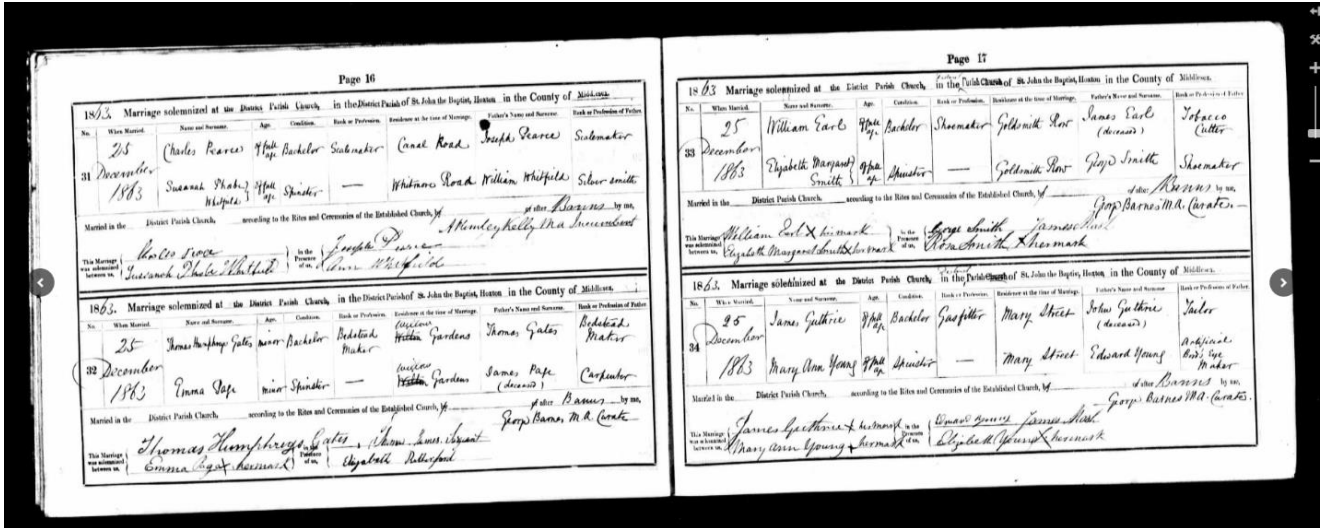 Page 16
1863. Marriage solemnized at the District Parish Church, in the District Parish of St. John the Baptist, Hoxton in the County of Middlesex.
No. When Married. Name and Surname. Age. Condition. Rank or Profession. Residence at the time of Marriage. Father's Name and Surname. Rank or Profession of Father.
31 25 December 1863 Charles Pearce Of full age Bachelor Scalemaker Canal Road Joseph Pearce Scalemaker
Susanah Phabe Whitfield Of full age Spinster — Whitmore Road William Whitfield Silver smith
Married in the District Parish Church, according to the Rites and Ceremonies of the Established Church, by or after Banns by me,
A Kelly M.A. Incumbent
This Marriage was solemnized between us, Charles in the Presence of us, Joseph
Susanah Phabe Whitfield Ann Whitfield
1863. Marriage solemnized at the District Parish Church, in the District Parish of St. John the Baptist, Hoxton in the County of Middlesex.
No. When Married. Name and Surname. Age. Condition. Rank or Profession. Residence at the time of Marriage. Father's Name and Surname. Rank or Profession of Father.
32 25 December 1863 Thomas Humphrys Gates minor Bachelor Bedstead Maker Gardens Thomas Gates Bedstead Maker
Emma Pape minor Spinster — Gardens James Pape (deceased) Carpenter
Married in the District Parish Church, according to the Rites and Ceremonies of the Established Church, by or after Banns by me,
Georg Barnes M.A. Curate
This Marriage was solemnized between us, Thomas Humphreys Gates in the Presence of us, James
Emma X her mark Elizabeth Rutherford
Page 17
1863 Marriage solemnized at the District Parish Church, in the Parish Church of St. John the Baptist, Hoxton in the County of Middlesex.
No. When Married. Name and Surname. Age. Condition. Rank or Profession. Residence at the time of Marriage. Father's Name and Surname. Rank or Profession of Father.
33 25 December 1863 William Earl Of full age Bachelor Shoemaker Goldsmith Row James Earl (deceased) Tobacco Cutter
Elizabeth Margaret Smith Of full age Spinster — Goldsmith Row Georg Smith Shoemaker
Married in the District Parish Church, according to the Rites and Ceremonies of the Established Church, by or after Banns by me,
Georg Barnes M.A. Curate
This Marriage was solemnized between us, William Earl X his mark in the Presence of us, George Smith James Nash
Elizabeth Margaret Smith X her mark Rosa Smith X her mark
1863. Marriage solemnized at the District Parish Church, in the Parish Church of St. John the Baptist, Hoxton in the County of Middlesex.
No. When Married. Name and Surname. Age. Condition. Rank or Profession. Residence at the time of Marriage. Father's Name and Surname. Rank or Profession of Father.
34 25 December 1863 James Guthrie Of full age Bachelor Gasfitter Mary Street John Guthrie (deceased) Tailor
Mary Ann Young Of full age Spinster — Mary Street Edward Young Artificial Bird's Eye Maker
Married in the District Parish Church, according to the Rites and Ceremonies of the Established Church, by or after Banns by me,
Georg Barnes M.A. Curate.
This Marriage was solemnized between us, James Guthrie X his mark in the Presence of us, Edward Young James Nash
Mary Ann Young X her mark Elizabeth Young X her mark